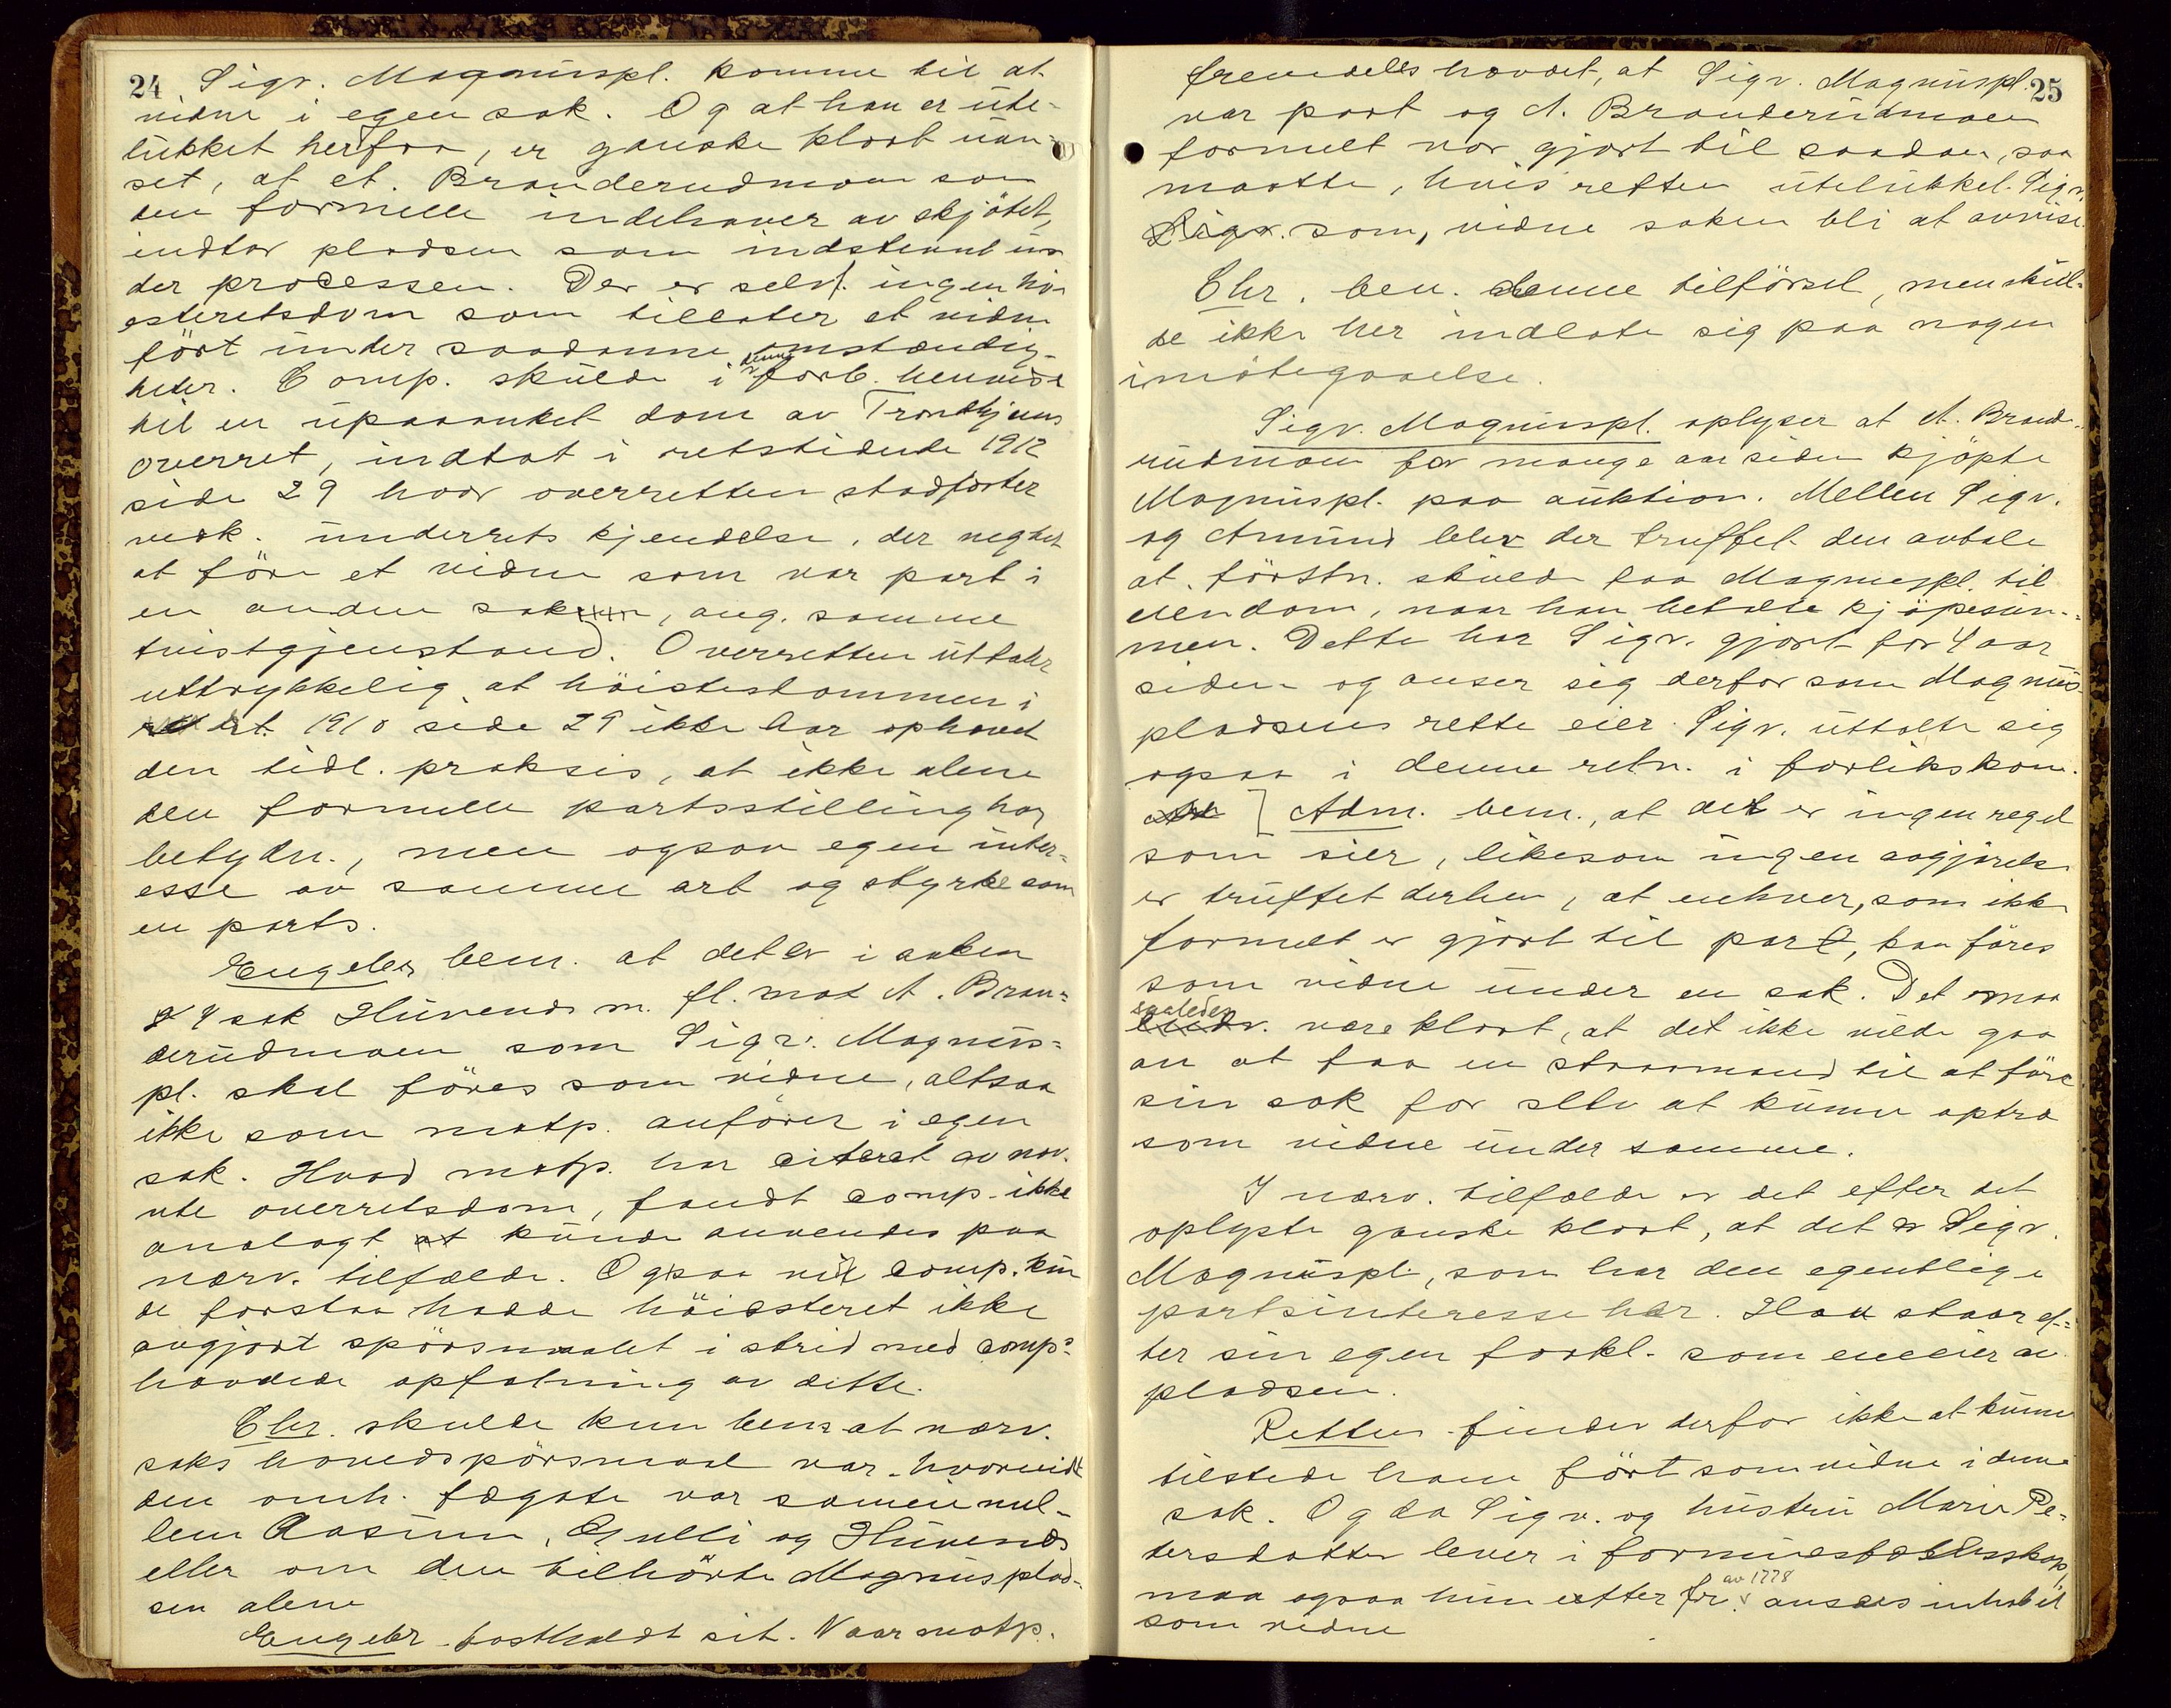 24 Sigv. Magnuspl. komme til at
vidne i egen sak. Og at han er ute-
lukket herfra, er ganske klart uan-
set, at et. Branderudmoen som
den formelle indehaver av skjötet,
indtar pladsen som indstevnt un
der processen. Der er selvf. ingen hö-
esteretsdom som tillater et vidne
fört under saadanne omstændig-
heter. Comp. skulde i denne forb. henvise
til en upaaanket dom av Trondhjems
overret, indtat i retstidende 1912
side 29 hvor overretten stadfæster
vedk. underrets kjendelse, der negtet
at före et vidne som var part i
en anden sak, ang. samme
tvistgjenstand. Overretten uttaler
uttrykkelig, at höiestesdommen i
rt. 1910 side 29 ikke har ophævet
den tidl. praksis, at ikke alene
den formelle partsstilling har
betydn., men ogsaa egen inter-
esse av samme art og styrke som
en parts.
Engebr. bem. at det er i saken
4 sak Huvends m. fl. mot A. Bran-
derudmoen som Sigv. Magnus-
pl. skal föres som vidne, altsaa
ikke som motp. anförer i egen
sak. Hvad motp. har citeret av nov.
nte overretsdom, fandt comp. ikke
analogt kunde anvendes paa
nærv. tilfælde. Ogsaa vidt comp. kun
de forstaa hadde höiesteret ikke
avgjort spörsmaalet i strid med comp.
hævdede opfatning av dette.
Chr. skulde kun bem. at nærv.
saks hovedspörsmaal var, hvorvidt
den omh. fægate var sameie mel-
lem Aasum, Gulli og Huvends
eller om den tilhörte Magnusplad-
sen alene
Engebr. fastholdt sit. Naar motp.
fremdeles hævdet, at Sigv. Magnuspl. 25
var part og A. Branderudmoen
formelt var gjort til saadan, saa
maatte, hvis retten utelukket Sigv.
som vidne saken bli at avvise.
Chr. ben. denne tilförsel, men skul-
de ikke her indlate sig paa nogen
imötegaaelse.
Sigv. Magnuspl. oplyser at A. Brand-
rudmoen for mange aar siden kjöpte
Magnuspl. paa auktion. Mellem Sigv.
og Amund blev der truffet den avtale
at förstn. skulde faa Magnuspl. til
eiendom, naar han betalte kjöpesum-
men. Dette har Sigv. gjort for 4 aar
siden og anser sig derfor som Magnus-
pladsens rette eier. Sigv. uttalte sig
ogsaa i denne retn. i forlikskom.
[Adm. bem., at det er ingen regel
som sier, likesom ingen avgjörelse
er truffet derhen, at enhver, som ikke
formelt er gjort til part, kan föres
som vidne under en sak. Det maa
saaledes være klart, at det ikke vilde gaa
an at faa en straamand til at före
sin sak for selv at kunne optræ
som vidne under samme.
I nærv. tilfælde er det efter det
oplyste ganske klart, at det er Sigv.
Magnuspl., som har den egentlige
partsinteresse her. Han staar ef-
ter sin egen forkl. som eneeier av
pladsen.
Retten finder derfor ikke at kunne
tilstede ham fört som vidne i denne
sak. Og da Sigv. og hustru Marie Pe-
tersdatter lever i formuesfællesskap,
maa ogsaa hun efter fr. av 1778 ansees inhabil
som vidne